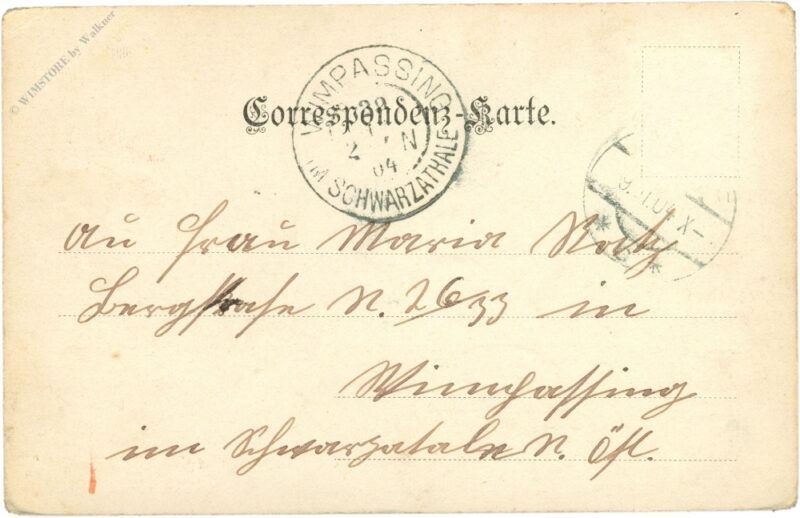 © WIMSTORE by Walkner
Correspondenz-Karte.
WIMPASSING
2 N
04
IM SCHWARZATHALE
9. 04 X-
An Frau Maria
Bergstraße N. 2633 in
Wimpassing
im Schwarzatale N. Öst.